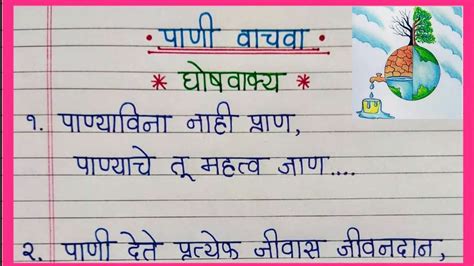 • पाणी वाचवा •
* घोषवाक्य *
१. पाण्याविना नाही प्राण,
पाण्याचे तू महत्व जाण....
२. पाणी देते प्रत्येक जीवास जीवनदान,